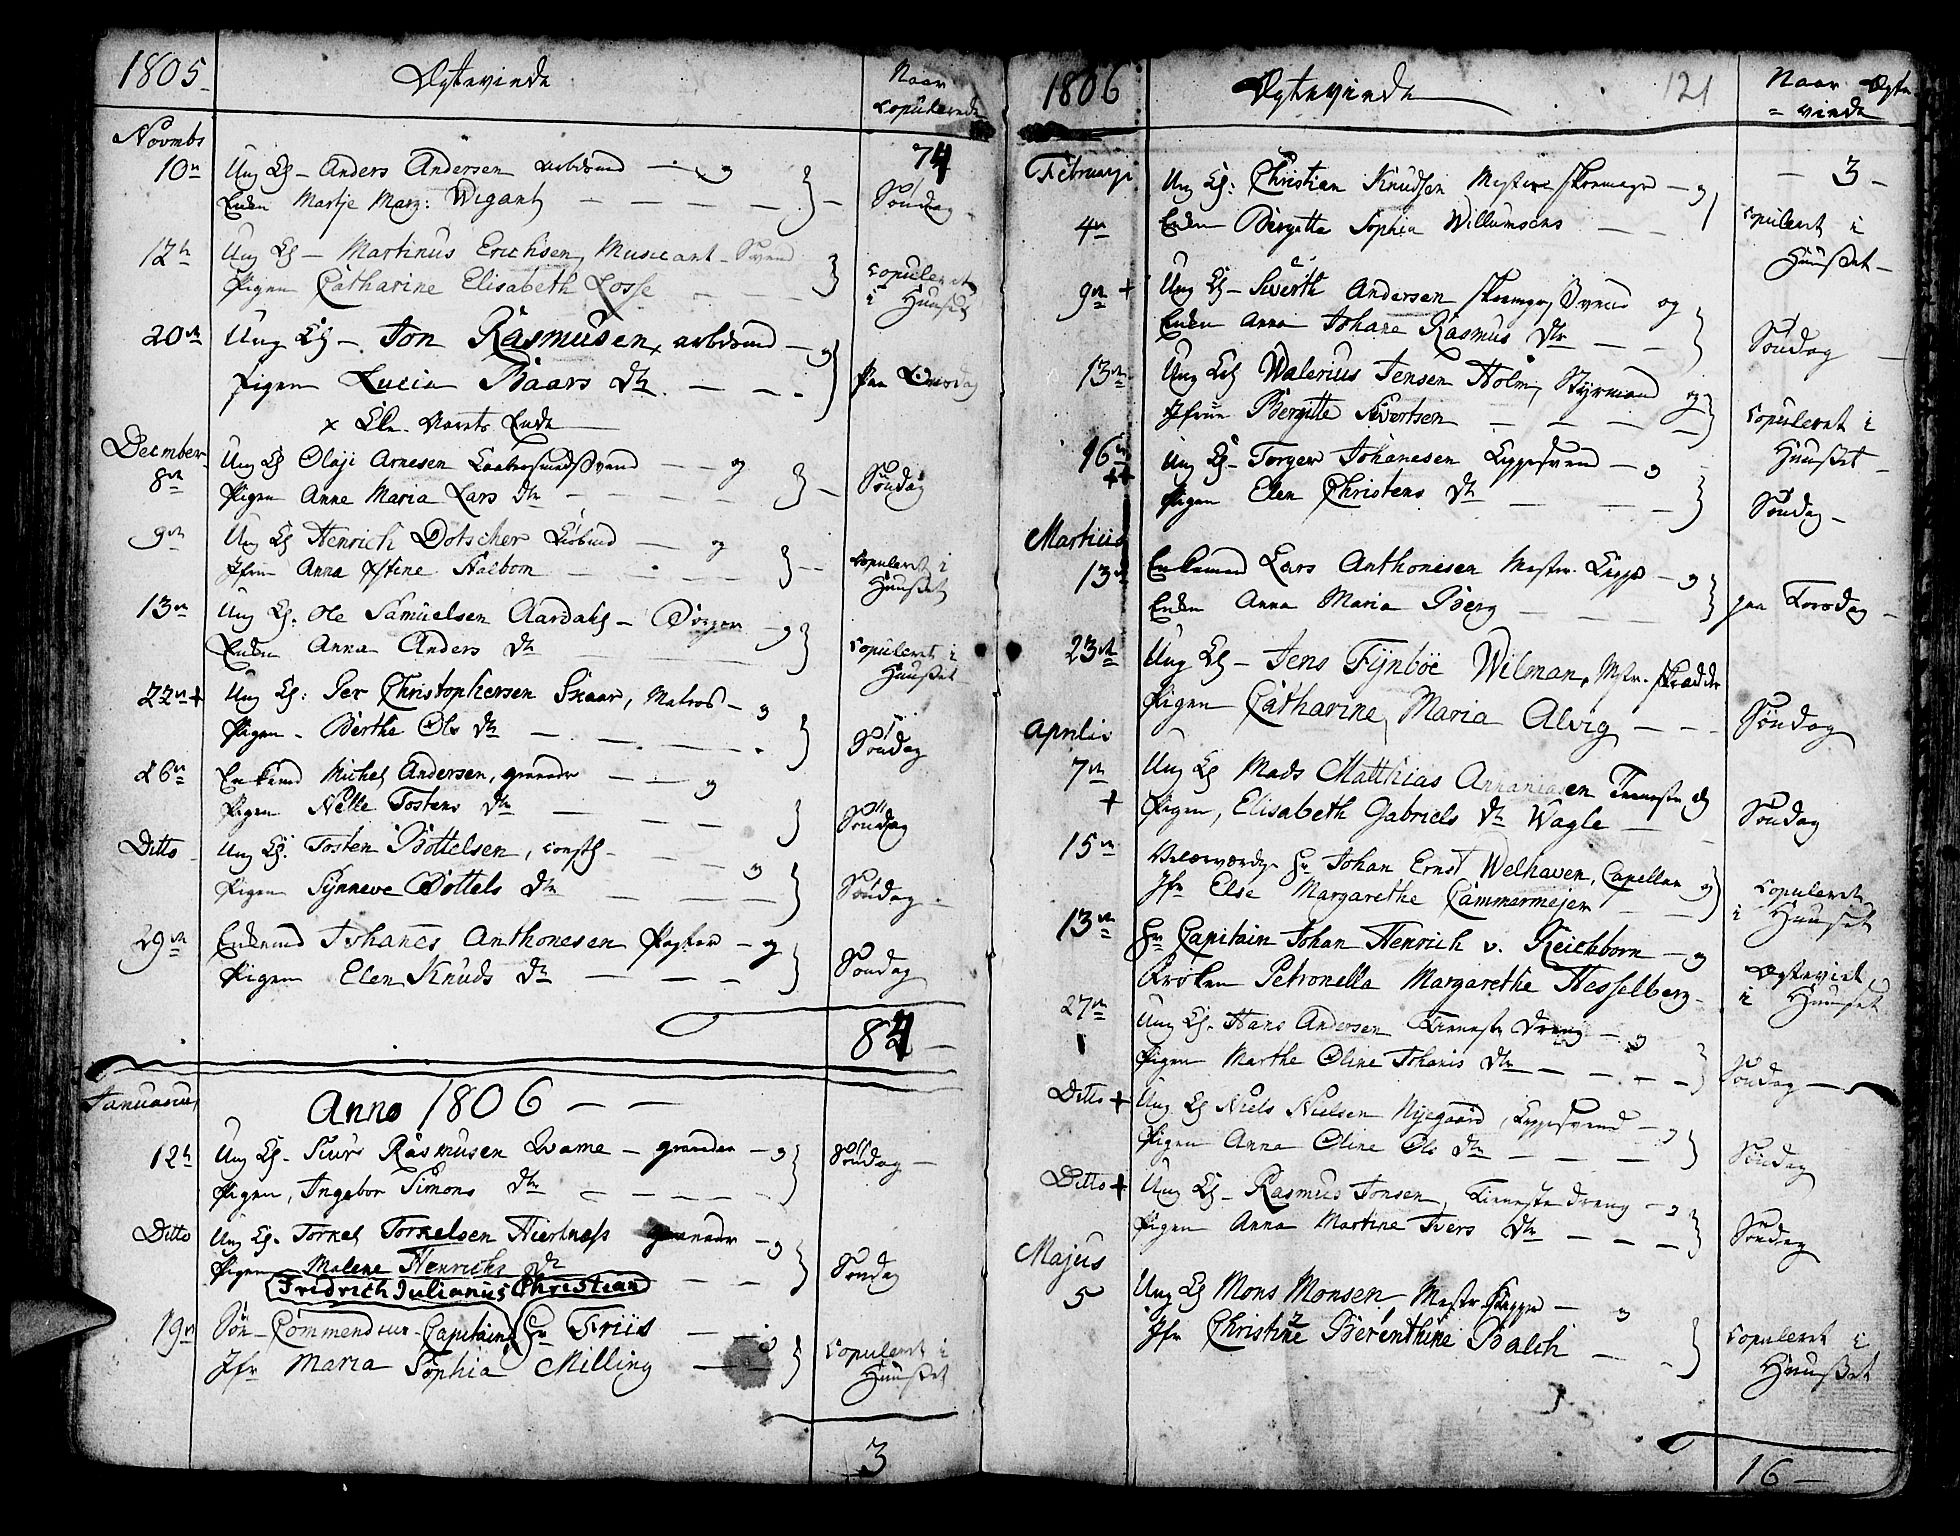 1805
Ægteviede
Naar
Copulerede
Novmbr
74
10de Ung K. – Anders Andersen Arbdsmd – og
Enken Martje Marg: Wigant
Søndag
12te Ung K – Martinus Erichsen, Musicant-Svend
Pigen Catharine Elisabeth Losse
Copuleret
i Huuset
20de Ung K – Jon Rasmusen, x arbdsmd – og
Pigen Lucia Baars Dtr
paa Onsdag
December
8de Ung K Olaji Arnesen – og
Pigen Anne Maria Lars Dtr
Søndag
9de Ung K Henrich Dotscher – og
Jfru Anna Xstine Halbom
Copuleret i
Huuset
13de Ung K. Ole Samuelsen Aardahl – og
Enken Anna Anders Dtr
Copuleret i
Huuset
22de + Ung K: Per Christophersen Skaar, Matros – og
Pigen – Berthe Ols Dtr
Søndag
26de Enkemd Michel Andersen, granader – og
Pigen Nelle Tostens Dtr
Søndag
Ditto Ung K. Tosten Bottelsen, const. – og
Pigen Synneve Bottels Dtr
Søndag
29de Enkemd Johanes Anthonesen – og
Pigen Elen Knuds Dtr
Søndag
84
Januarius
Anno 1806
12te Ung K. Siurs Rasmusen Qvame – granader – og
Pigen, Ingebor Simons Dtr
Søndag
Ditto Ung K. Torkel Torkelsen Hiertnæss granader – og
Pigen Malene Henrichs Dtr
Søndag
Fridrich Julianus Christian
19de Søe-Commendeur-Capitain, Hr Friis – og
Jfr Maria Sophia Milling
Copuleret i
Huuset
3
1806
Ægteviede
121
Naar Ægte
= viede
Februarji
– 3 –
4de Ung K: Christian Knudsen Mester skomager – og
Enken Bergitte Sophia Willumsens
Copuleret i
Huuset
9de + Ung K – Siverth Andersen skomager Svend og
Enken Anna Johane Rasmus Dtr
Søndag
13de Ung K Walerius Jensen Holm, Styrmand og
Jfrue Bergitte Sivertsen
Copuleret i
Huuset
16de ++ Ung K – Torger Johanesen – og
Pigen Elen Christens Dtr
Søndag
Martius
13de Enkemd Lars Anthonesen Mester – og
Enken Anna Maria Berg
paa Torsdag
23de Ung K – Jens Fynböe Wilman, Mstr. skrædder
Pigen Catharine Maria Alvig
Søndag
Aprilis
7de + Ung K Mads Matthias Annaniasen Tieneste og
Pigen, Elisabeth Gabriels Dtr Wagle
Søndag
15de Velærværdige Hr. Johan Ernst Welhaven, Capellan og
Jfr Else Margarethe Cammermejer
Copuleret
i Huuset
13de Hr Capitain Johan Henrich v. Reichborn – og
Frøken Petronella Margarethe Hesselberg
Ægteviet
i Huuset
27de Ung K. Hans Andersen Tieneste Dreng – og
Pigen Marthe Oline Johanis Dtr
Søndag
Ditto + Ung K Niels Nielsen Nyegaard, – og
Pigen Anna Oline Ols Dtr
Søndag
Ditto + Ung K – Rasmus Jonsen, Tieneste Dreng – og
Pigen Anna Martine Ivers Dtr
Søndag
Majus
5 Ung K Mons Monsen Mester – og
Jfr Christine Berenthine Balch
Copuleret i
Huuset
16